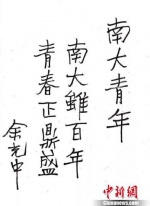 南大青年
南大雖百年
青春正鼎盛
余光中
中新網